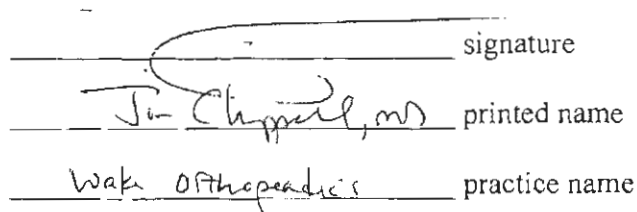 signature
Jim Chappell, MD printed name
Wake Orthopeadics practice name